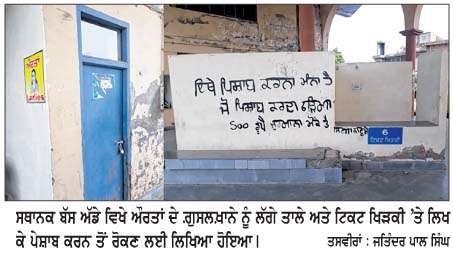 ਔਰਤਾਂ
ਇਥੇ ਪਿਸ਼ਾਬ ਕਰਨਾ ਮਨਾ ਹੈ
ਜੋ ਪਿਸ਼ਾਬ ਕਰਦਾ ਫੜਿਆ
500 ਰੁਪੈ ਜੁਰਮਾਨਾ
6
ਟਿਕਟ ਖਿੜਕੀ
ਸਥਾਨਕ ਬੱਸ ਅੱਡੇ ਵਿਖੇ ਔਰਤਾਂ ਦੇ ਗੁਸਲਖਾਨੇ ਨੂੰ ਲੱਗੇ ਤਾਲੇ ਅਤੇ ਟਿਕਟ ਖਿੜਕੀ 'ਤੇ ਲਿਖ
ਕੇ ਪੇਸ਼ਾਬ ਕਰਨ ਤੋਂ ਰੋਕਣ ਲਈ ਲਿਖਿਆ ਹੋਇਆ। ਤਸਵੀਰਾਂ : ਜਤਿੰਦਰ ਪਾਲ ਸਿੰਘ